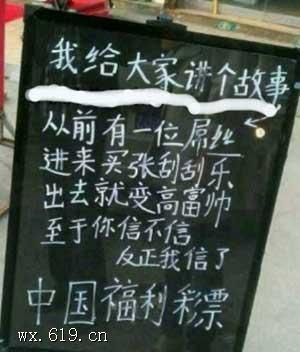 我给大家讲个故事
从前有一位屌丝
进来买张刮刮乐
出去就变高富帅
至于你信不信
反正我信了
中国福利彩票
wx.619.cn